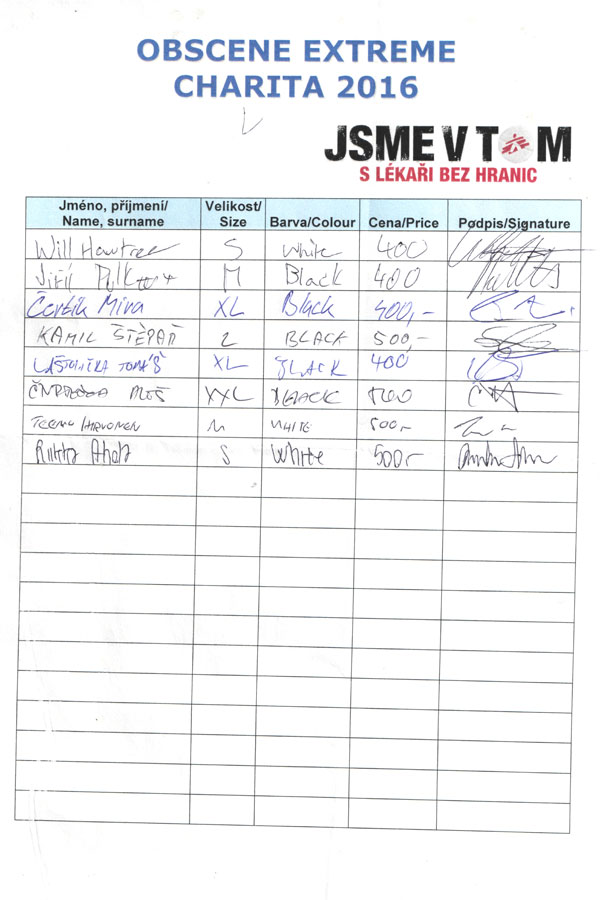 OBSCENE EXTREME
CHARITA 2016
JSME V TOM
S LÉKAŘI BEZ HRANIC
Jméno, příjmení/ Velikost/
Name, surname Size Barva/Colour Cena/Price Podpis/Signature
Will S White 400
Jiří M Black 400
Čeržík Míra XL Black 400,-
KAMIL ŠTĚPÁŇ 2 BLACK 500,-
LAŠTOVIČKA TOMÁŠ XL BLACK 400
XXL BLACK 500
TEEMU HIRVONEN M WHITE 500,-
S White 500,-